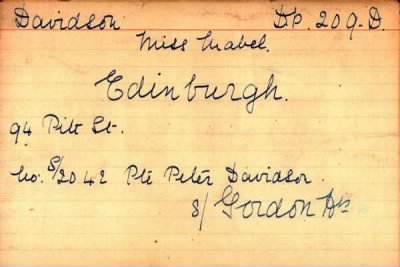 Davidson DP. 209-D.
Miss Mabel.
Edinburgh.
94 Pitt St.
No. S/2042 Pte Peter Davidson.
8/ Gordon Hrs